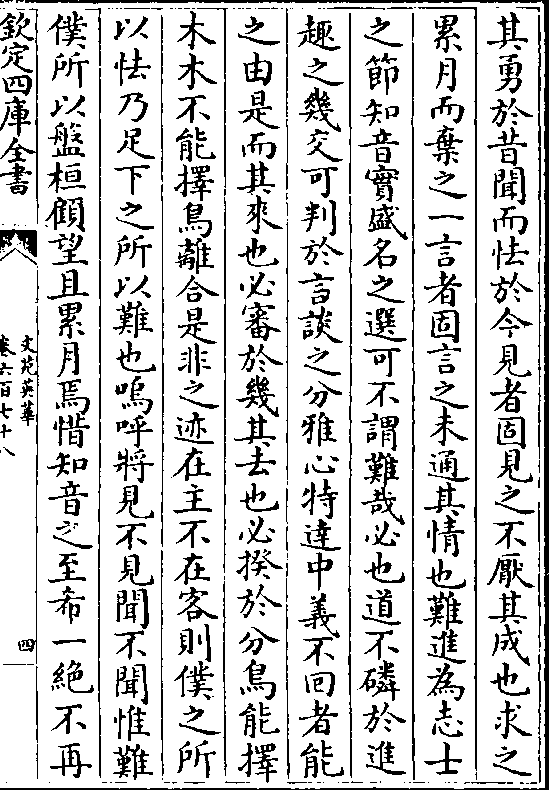 其勇於昔聞而怯於今見者固見之不厭其成也求之
累月而棄之一言者固言之未通其情也難進為志士
之節知音實盛名之選可不謂難哉必也道不磷於進
趣之幾交可判於言談之分雅心特達中義不回者能
之由是而其來也必審於幾其去也必揆於分鳥能擇
木木不能擇鳥離合是非之迹在主不在客則僕之所
以怯乃足下之所以難也嗚呼將見不見聞不聞惟難
僕所以盤桓顧望且累月焉惜知音之至希一絶不再
欽定四庫全書
文苑英華
卷六百七十八
四